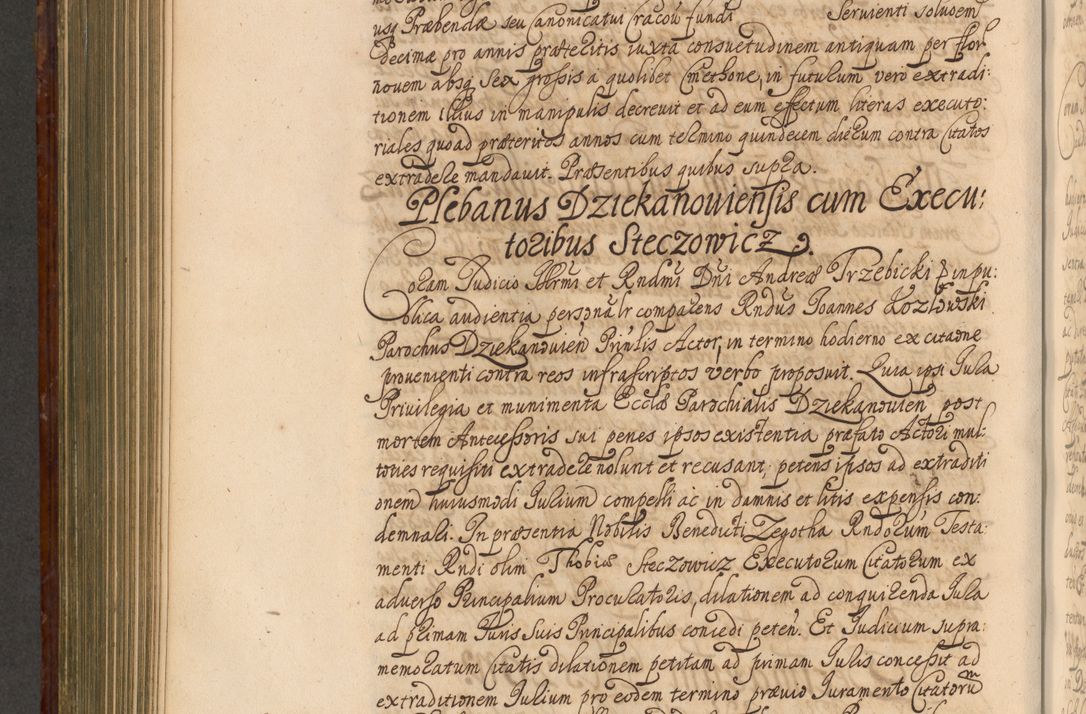 usq Præbendæ seu Canonicatui Cracou fundi Servienti soluoem
decimæ pro annis præteritis iuxta consuetudinem antiquam per flor
novem absq sex grossis a quolibet Cmethone, in futurum vero extradi:
tionem illius in manipulis decrevit et ad eum effectum literas executo:
riales quoad præteritos annos cum termino quindecem dierum contra Citatos
extradere mandavit. Præsentibus quibus supra.
Plebanus Dziekanoviensis cum Execu:
toribus Steczowicz.
Coram Judicio Illrmi et Rndmi Dni Andreæ Trzebicki in pu:
blica audientia personalr comparens Rndus Joannes Kozlowski
Parochus Dziekanovien Prinlis Actor, in termino hodierno ex citaone
provenienti contra reos infrascriptos verbo proposuit. Quia ipsi Jura
Privilegia et munimenta Ecclæ Parochialis Dziekanovien post
mortem Antecessoris sui penes ipsos existentia præfato Actori mul:
toties requisiti extradere nolunt et recusant, petens ipsos ad extraditi
onem huiusmodi Jurium compelli ac in damnis et litis expensis con:
demnari. In præsentia Nobilis Benedicti Zegotha Rndorum Testa
menti Rndi olim Thobiæ Steczowicz Executorum Citatorum ex
adverso Principalium Procuratoris, dilationem ad conquirenda Jura
ad primam Juris suis Principalibus concedi peten. Et Judicium supra:
memoratum Citatis dilationem petitam ad primam Juris concessit ad
extraditionem Jurium pro eodem termino prævio Juramento Citatorum